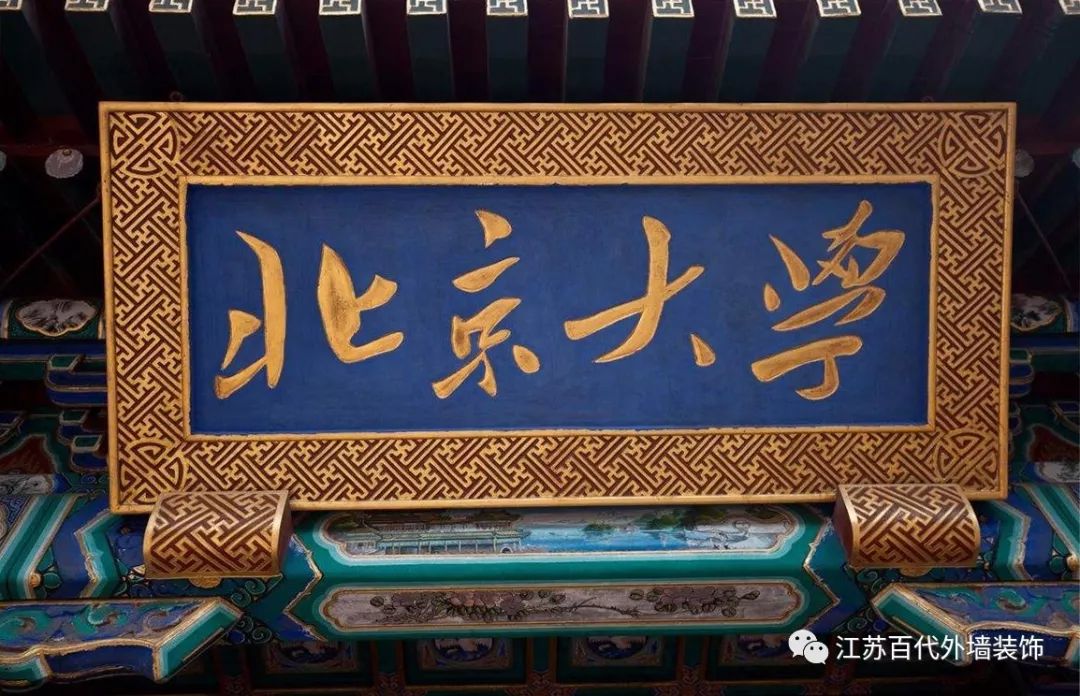 北京大学
江苏百代外墙装饰